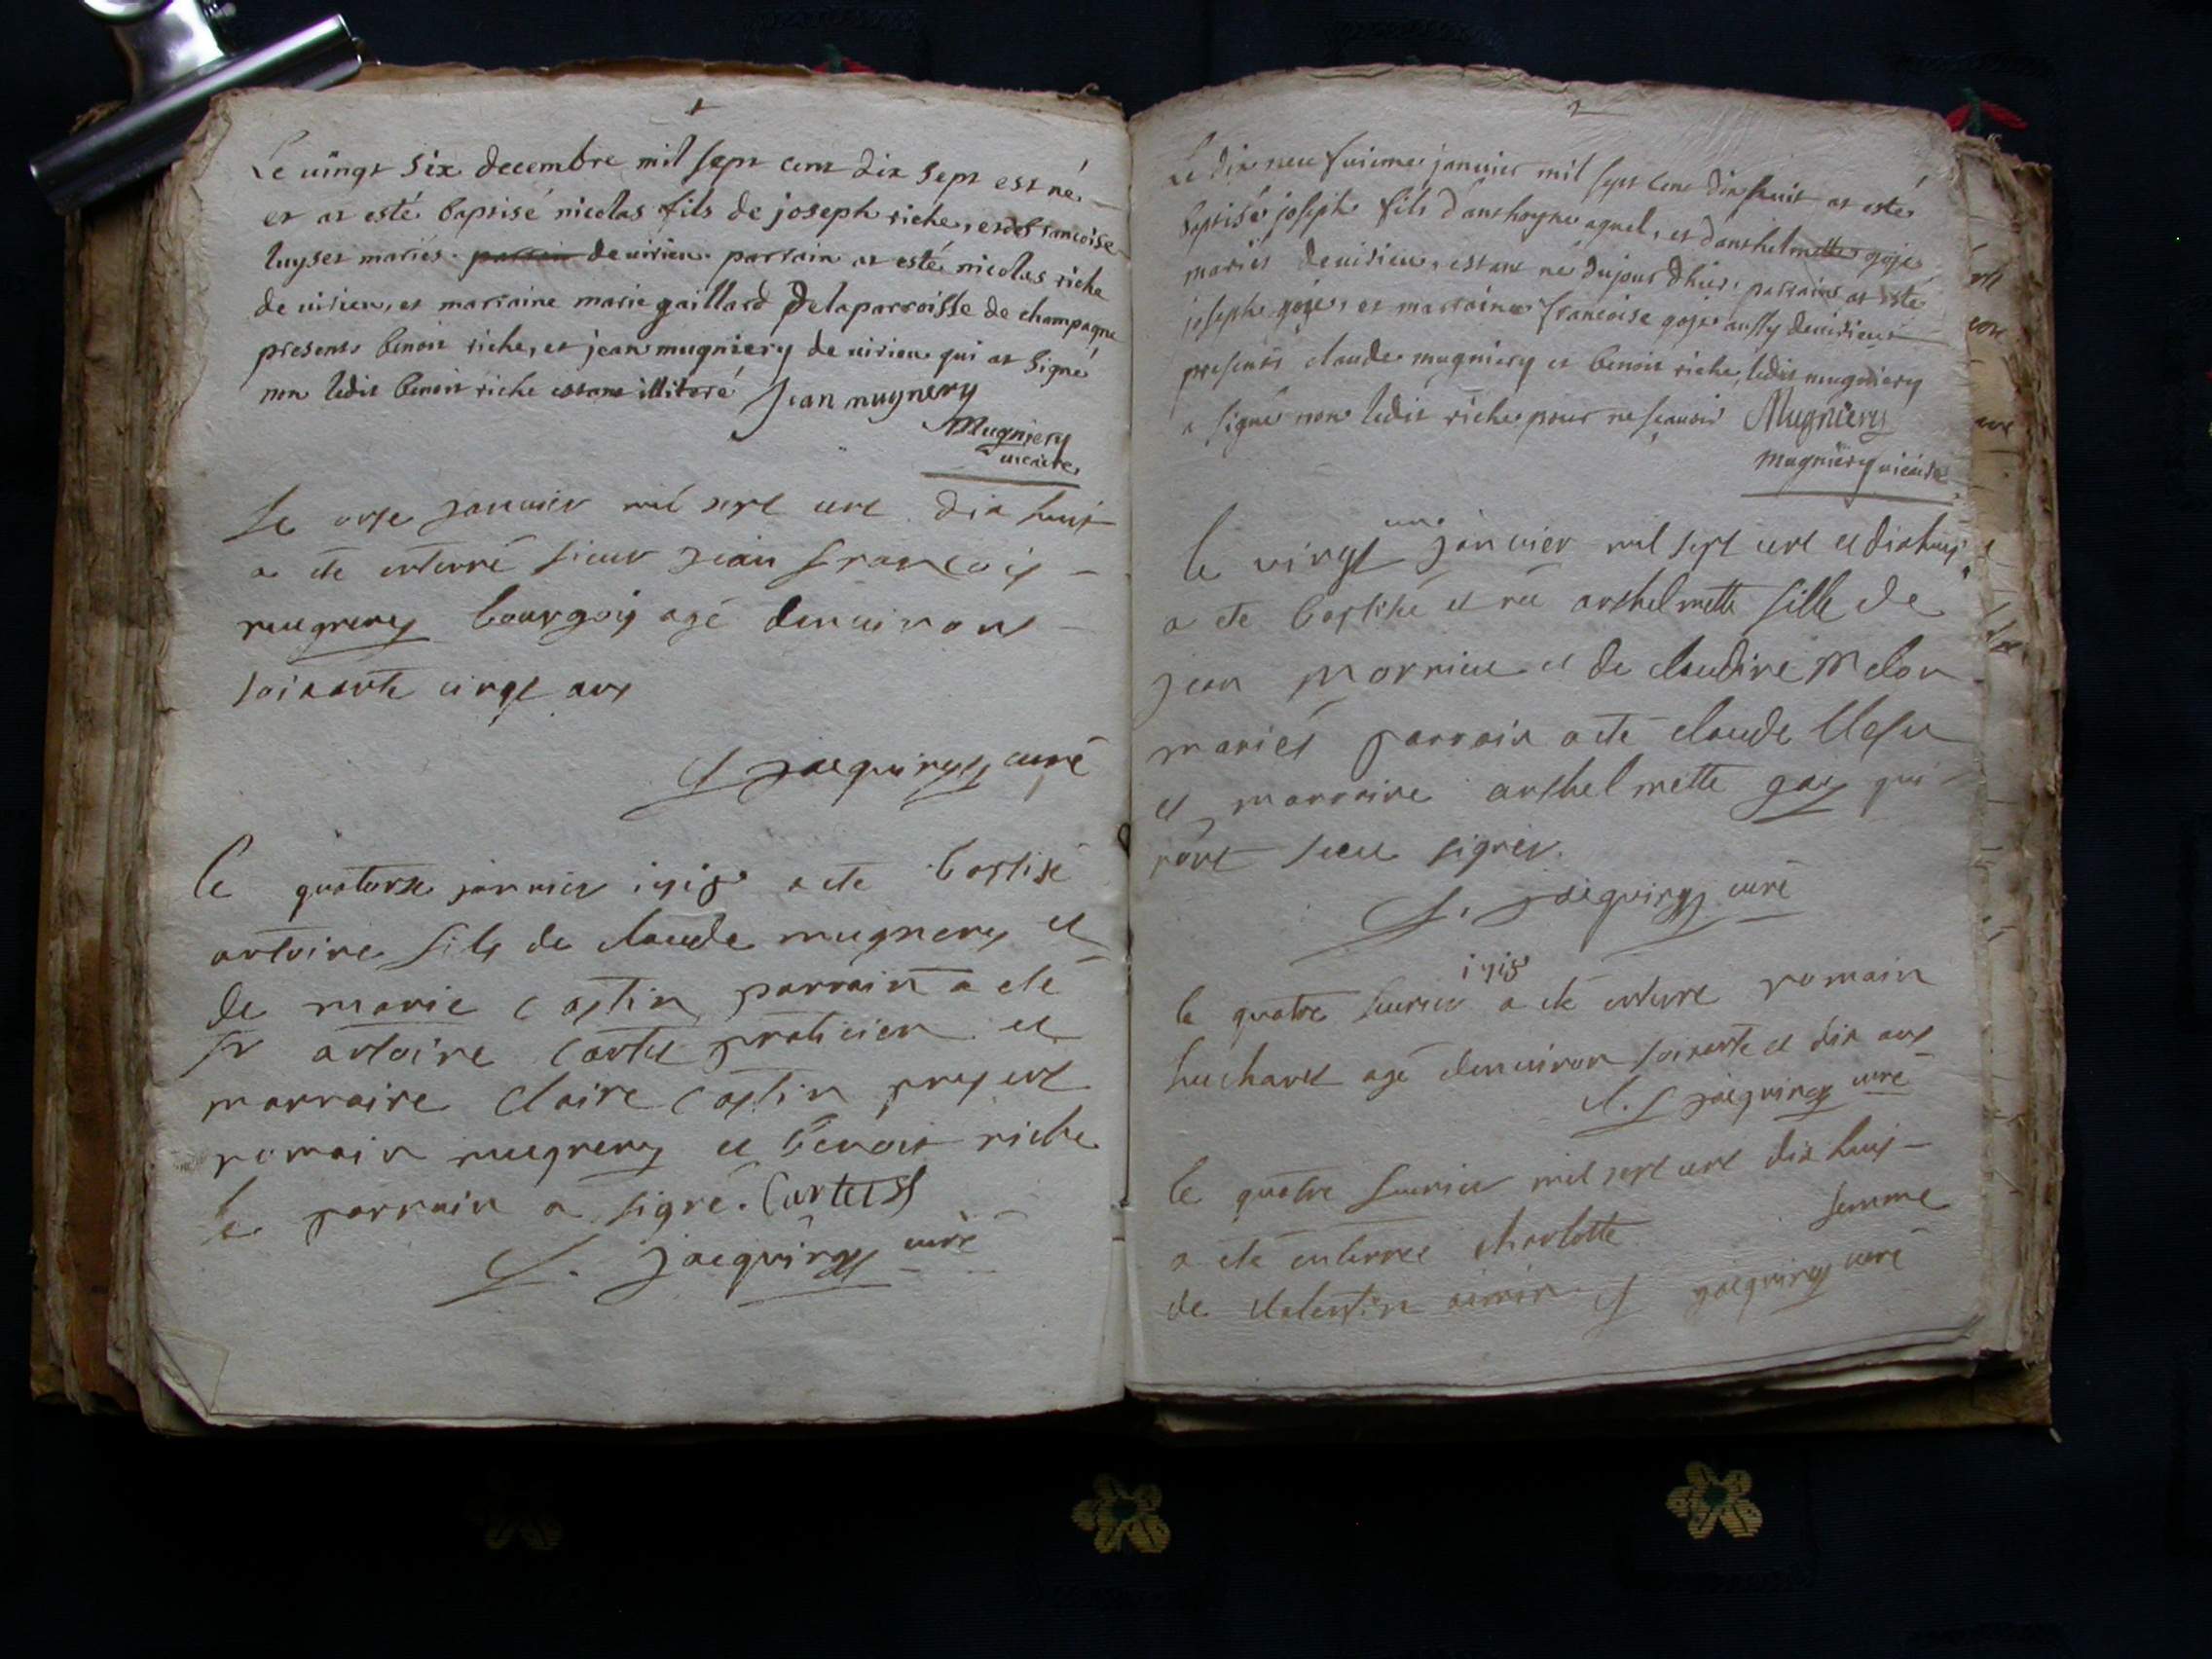 Le vingt six decembre mil sept cent dix sept est né
et at esté baptisé nicolas fils de joseph riche, et de francoise
luyset mariés. parrain de virieu. parrain at esté nicolas riche
de virieu, et marraine marie gaillard de la parroisse de champagne
presents benoit riche, et jean mugniery de virieu qui at signé
non ledit benoit riche estant illiteré Jean mugnery
Mugniery
vicaire
Le onze janvier mil sept cent dix huit
a ete enterré sieur jean francois
mugnery bourgois agé denviront
soixante cinqt ans
J jacquiney curé
le quatorze janvier 1718 a ete baptisé
antoine fils de claude mugnery et
de marie castin parrain a ete
sr antoine cartet praticien et
marraine claire castin present
romain mugnery et benoit riche
le parrain a signé. Cartet
J. jacquiney curé
2
Le dix neufvieme janvier mil sept cent dix huit at esté
baptisé joseph fils d'anthoyne aguel, et d'anthelmette goje
mariés de virieu, estant né du jour d'hier, parrain at esté
joseph goje, et marraine francoise goje aussy de virieu
presents claude mugniery et benoit riche, ledit mugniery
a signé non ledit riche pour ne scavoir Mugniery
mugniery vicaire
le vingt un janvier mil sept cent et dix huit
a ete baptisé et née anthelmette fille de
jean morrieu et de claudine melon
mariés parrain a ete claude
et marraine anthelmette gay qui
nont sceu signer.
J. jacquiney curé
1718
le quatre fevrier a ete enterre romain
huchard agé denviron soixante et dix ans
J jacquiney curé
le quatre fevrier mil sept cent dix huit
a ete enterree charlotte femme
de valentin J jacquiney curé